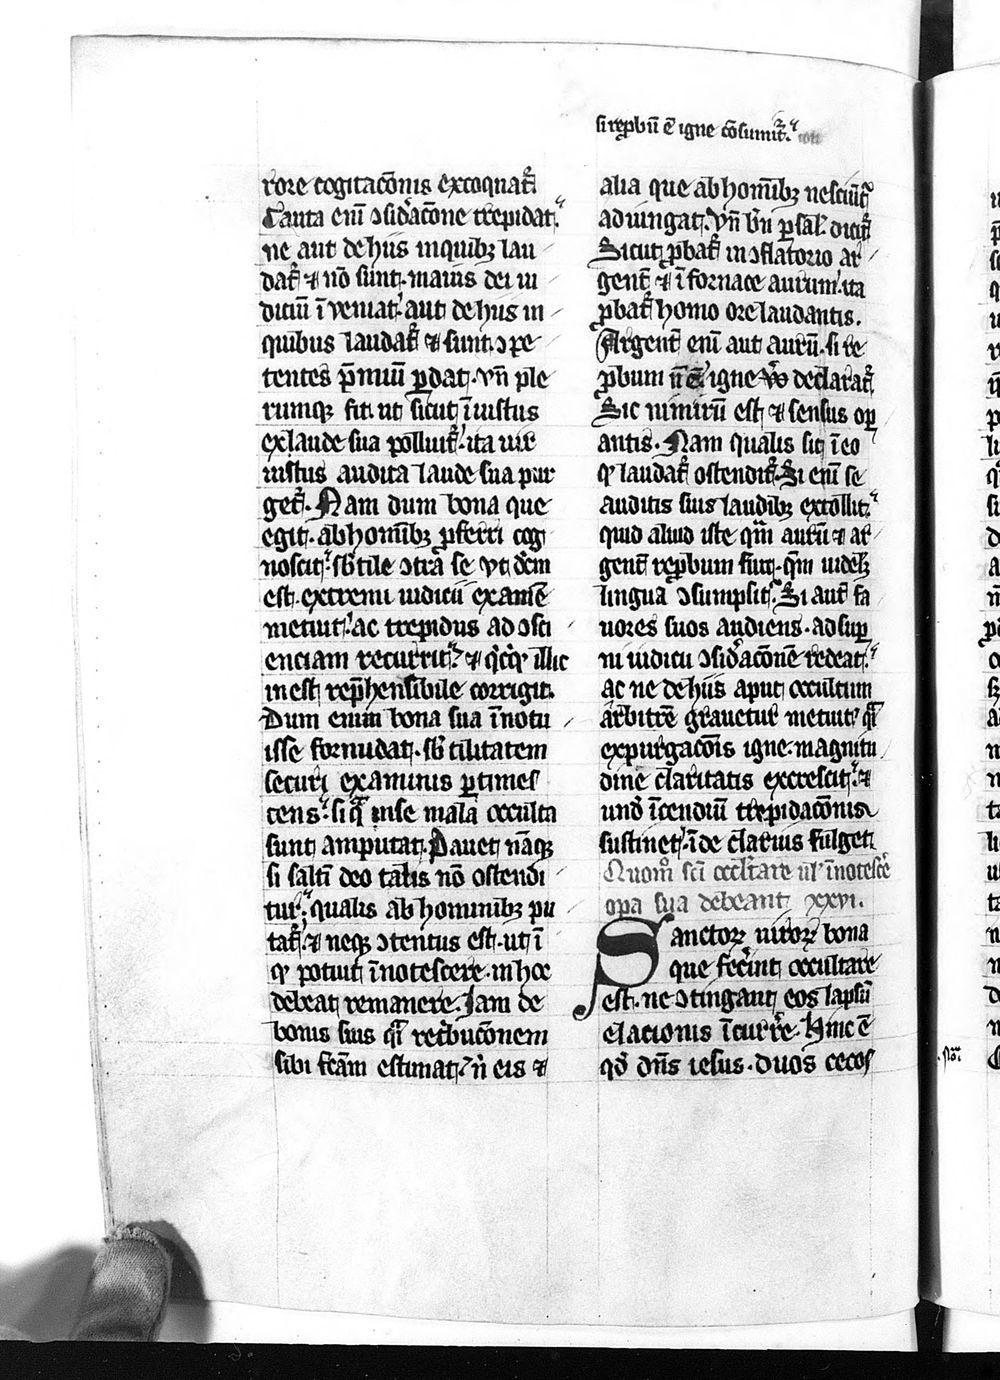 si rep̱bū ē igne cōsumit᷑.
rore cogitacōnis excoquat᷑.
Cauta enī ↄsid᷑acōne trepidat.
ne aut de hiis in quibꝫ lau
dat᷑ ⁊ nō sunt. maius dei iu
diciū īveniat. aut de hiis in
quibus laudat᷑ ⁊ sunt. ↄpe
tentes p̄miū ꝑdat. vn̄ ple
rumqꝫ fit. ut sicut īiustus
ex laude sua polluit᷑. ita vir
iustus audita laude sua pur
get᷑. Nam dum bona que
egit. ab hom̄ibꝫ ꝓferri cog
noscit. sb᷑tile ↄtra se vt dc̄m
est. extremi iudicii examē
metuit. ac trepidus ad ↄsci
enciam recurrit. ⁊ q͛cq͛ illic
inest rep̄hensibile corrigit.
Dum enim bona sua īnotu
isse formidat. sb᷑tilitatem
securi examinis ꝑtimes
cens. si q̄ in se mala occulta
sunt amputat. Pavet nāqꝫ
si saltī deo talis nō ostendi
tur. qualis ab hominibꝫ pu
tat᷑. ⁊ neqꝫ ↄtentus est. ut ī
qͦ potuit īnotescere. in hoc
debeat remanere. Jam de
bonis suis q̄i ret᷑bucōnem
sibi fc̄am estimat. n̄ eis ⁊
alia que ab hom̄ibꝫ nesciūt᷑
adiungat. Vn̄ bn̄ ꝑ sal᷑. dicit᷑
Sicut ꝓbat᷑ in ↄflatorio ar
gent᷑ ⁊ ī fornace aurum. ita
ꝓbat᷑ homo ore laudantis.
Argent᷑ enī aut aurū. si re
ꝓbum n̄ ē. igne vͦ declarat᷑.
Sic nimirū est ⁊ sensus oꝑ
antis. Nam qualis sit ī eo
qͦ laudat᷑ ostendit᷑. Si enī se
auditis suis laudibꝫ extollit.
quid aliud iste qm̄ aurū ⁊ ar
gent᷑ reꝓbum fuit. qm̄ videlꝫ
lingua ↄsumpsit. Si aut᷑ fa
vores suos audiens. ad suꝑ
ni iudicii ↄsid᷑acōnē redeat.
ac ne de hiis aput occultum
arbitrē gravetur metuit. q̄i
expurgacōis igne. magnitu
dine claritatis excrescit. ⁊
und᷑ īcendiū trepidacōnis
sustinet. īde clarius fulget.
Quomͦ sc̄i occl᷑tare ul᷑ īnotesc᷑e
oꝑa sua debeant xxvi.
Sanctoꝝ viroꝝ bona
que fec᷑int occultare
est. ne ↄtingant eos lapsū
elacionis īcurr᷑e. Hinc ē
qd᷑ dn̄s iesus. duos cecos